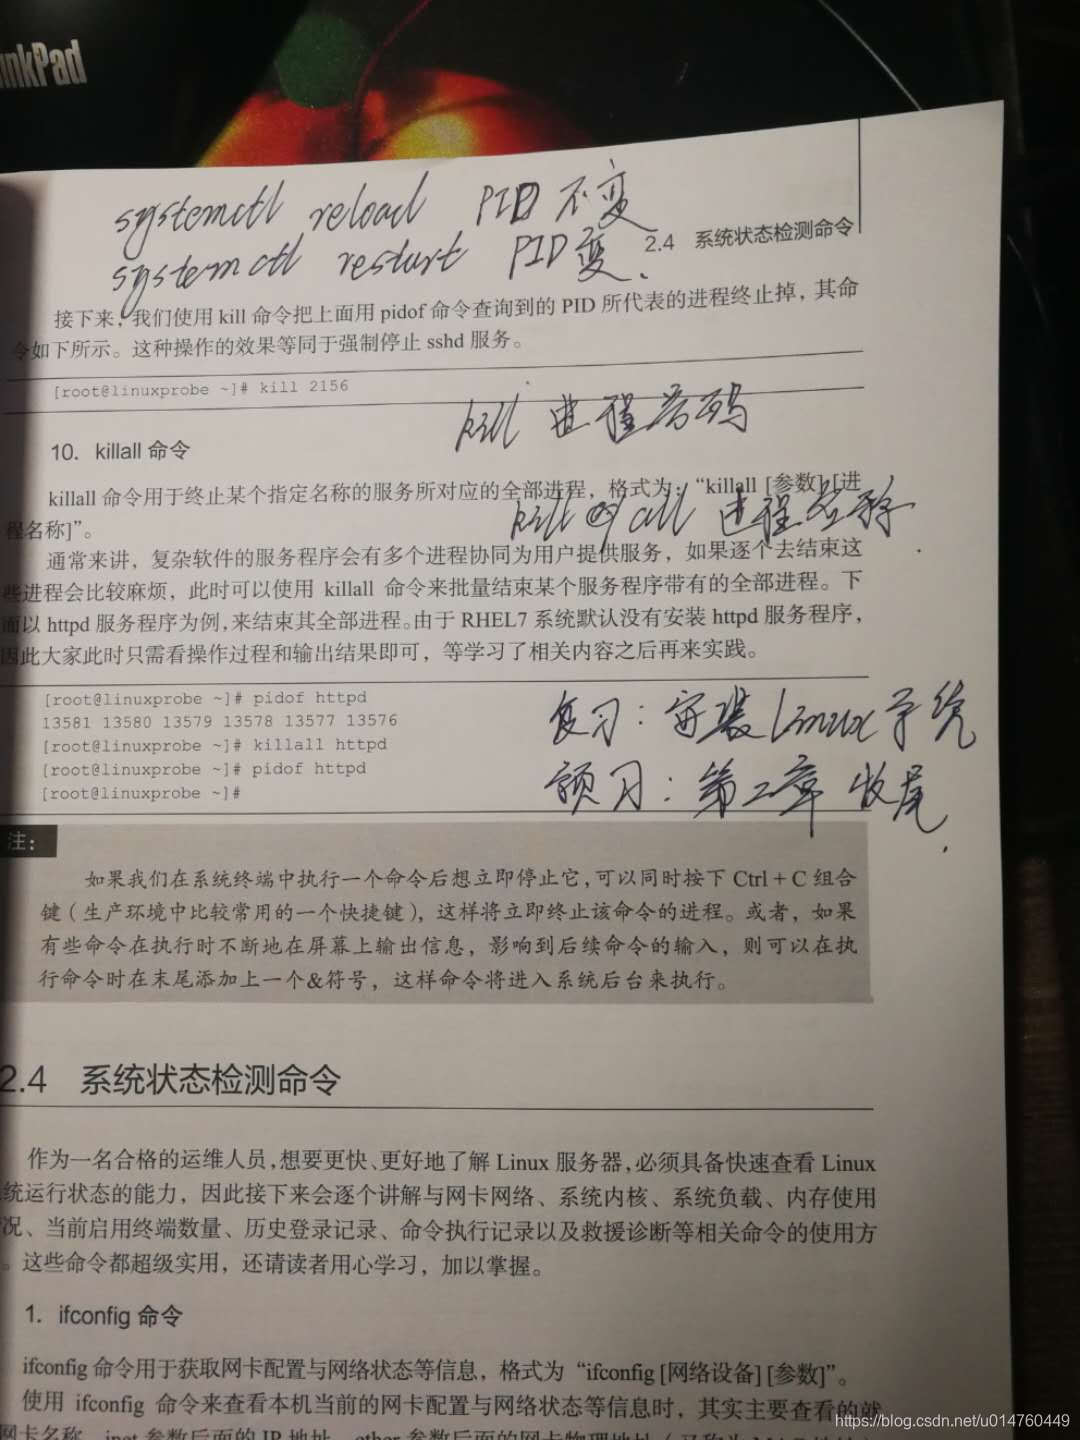 inkPad
systemctl reload PID 不变
2.4 系统状态检测命令
systemctl restart PID 变.
接下来,我们使用 kill 命令把上面用 pidof 命令查询到的 PID 所代表的进程终止掉，其命
令如下所示。这种操作的效果等同于强制停止 sshd 服务。
[root@linuxprobe ~]# kill 2156
kill 进程号码
10. killall 命令
killall 命令用于终止某个指定名称的服务所对应的全部进程，格式为：“killall [参数] [进
程名称]”。
kill all 进程名称
通常来讲，复杂软件的服务程序会有多个进程协同为用户提供服务，如果逐个去结束这
些进程会比较麻烦，此时可以使用 killall 命令来批量结束某个服务程序带有的全部进程。下
面以 httpd 服务程序为例,来结束其全部进程。由于 RHEL7 系统默认没有安装 httpd 服务程序，
因此大家此时只需看操作过程和输出结果即可，等学习了相关内容之后再来实践。
[root@linuxprobe ~]# pidof httpd
13581 13580 13579 13578 13577 13576
[root@linuxprobe ~]# killall httpd
[root@linuxprobe ~]# pidof httpd
[root@linuxprobe ~]#
复习：安装 Linux 系统
预习：第二章 收尾.
注：
如果我们在系统终端中执行一个命令后想立即停止它,可以同时按下 Ctrl + C 组合
键（生产环境中比较常用的一个快捷键），这样将立即终止该命令的进程。或者，如果
有些命令在执行时不断地在屏幕上输出信息，影响到后续命令的输入，则可以在执
行命令时在末尾添加上一个&符号，这样命令将进入系统后台来执行。
2.4 系统状态检测命令
作为一名合格的运维人员,想要更快、更好地了解 Linux 服务器,必须具备快速查看 Linux
统运行状态的能力，因此接下来会逐个讲解与网卡网络、系统内核、系统负载、内存使用
况、当前启用终端数量、历史登录记录、命令执行记录以及救援诊断等相关命令的使用方
。这些命令都超级实用，还请读者用心学习，加以掌握。
1. ifconfig 命令
ifconfig 命令用于获取网卡配置与网络状态等信息，格式为“ifconfig [网络设备] [参数]”。
使用 ifconfig 命令来查看本机当前的网卡配置与网络状态等信息时，其实主要查看的就
网卡名称、inet 参数后面的 IP 地址、ether 参数后面的网卡物理地址（又称为 MAC 地址）
https://blog.csdn.net/u014760449